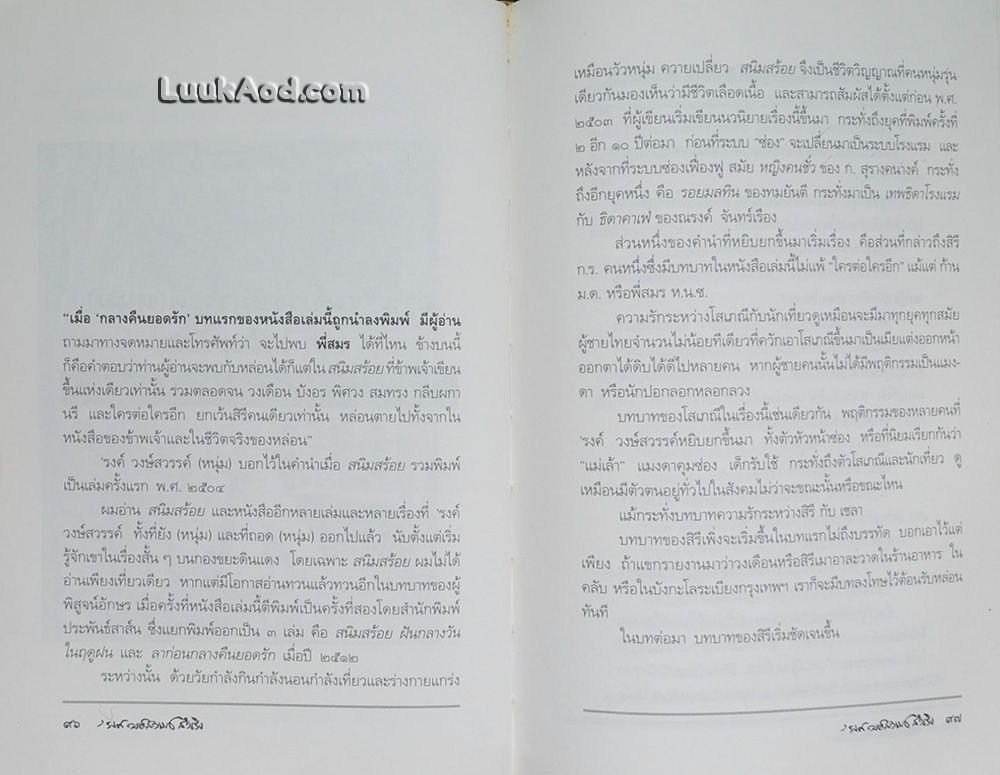 LuukAod.com
“เมื่อ ‘กลางคืนยอดรัก’ บทแรกของหนังสือเล่มนี้ถูกนำลงพิมพ์ มีผู้อ่าน
ถามมาทางจดหมายและโทรศัพท์ว่า จะไปพบ พี่สมร ได้ที่ไหน ข้างบนนี้
ก็คือคำตอบว่าท่านผู้อ่านจะพบกับหล่อนได้ก็แต่ใน สนิมสร้อย ที่ข้าพเจ้าเขียน
ขึ้นแห่งเดียวเท่านั้น รวมตลอดจน วงเดือน บังอร พิศวง สมทรง กลีบผกา
นรี และใครต่อใครอีก ยกเว้นสิรีคนเดียวเท่านั้น หล่อนตายไปทั้งจากใน
หนังสือของข้าพเจ้าและในชีวิตจริงของหล่อน”
’รงค์ วงษ์สวรรค์ (หนุ่ม) บอกไว้ในคำนำเมื่อ สนิมสร้อย รวมพิมพ์
เป็นเล่มครั้งแรก พ.ศ. ๒๕๐๔
ผมอ่าน สนิมสร้อย และหนังสืออีกหลายเล่มและหลายเรื่องที่ ’รงค์
วงษ์สวรรค์ ทั้งที่ยัง (หนุ่ม) และที่ถอด (หนุ่ม) ออกไปแล้ว นับตั้งแต่เริ่ม
รู้จักเขาในเรื่องสั้น ๆ บนกองขยะดินแดง โดยเฉพาะ สนิมสร้อย ผมไม่ได้
อ่านเพียงเที่ยวเดียว หากแต่มีโอกาสอ่านทวนแล้วทวนอีกในบทบาทของผู้
พิสูจน์อักษร เมื่อครั้งที่หนังสือเล่มนี้ตีพิมพ์เป็นครั้งที่สองโดยสำนักพิมพ์
ประพันธ์สาส์น ซึ่งแยกพิมพ์ออกเป็น ๓ เล่ม คือ สนิมสร้อย ฝันกลางวัน
ในฤดูฝน และ ลาก่อนกลางคืนยอดรัก เมื่อปี ๒๕๑๒
ระหว่างนั้น ด้วยวัยกำลังกินกำลังนอนกำลังเที่ยวและร่างกายแกร่ง
๙๖
เหมือนวัวหนุ่ม ควายเปลี่ยว สนิมสร้อย จึงเป็นชีวิตวิญญาณที่คนหนุ่มรุ่น
เดียวกันมองเห็นว่ามีชีวิตเลือดเนื้อ และสามารถสัมผัสได้ตั้งแต่ก่อน พ.ศ.
๒๕๐๓ ที่ผู้เขียนเริ่มเขียนนวนิยายเรื่องนี้ขึ้นมา กระทั่งถึงยุคที่พิมพ์ครั้งที่
๒ อีก ๑๐ ปีต่อมา ก่อนที่ระบบ “ซ่อง” จะเปลี่ยนมาเป็นระบบโรงแรม และ
หลังจากที่ระบบซ่องเฟื่องฟู สมัย หญิงคนชั่ว ของ ก. สุรางคนางค์ กระทั่ง
ถึงอีกยุคหนึ่ง คือ รอยมลทิน ของทมยันตี กระทั่งมาเป็น เทพธิดาโรงแรม
กับ ธิดาคาเฟ่ ของณรงค์ จันทร์เรือง
ส่วนหนึ่งของคำนำที่หยิบยกขึ้นมาเริ่มเรื่อง คือส่วนที่กล่าวถึงสิรี
ก.ร. คนหนึ่งซึ่งมีบทบาทในหนังสือเล่มนี้ไม่แพ้ “ใครต่อใครอีก” แม้แต่ ก้าน
ม.ด. หรือพี่สมร ห.น.ช.
ความรักระหว่างโสเภณีกับนักเที่ยวดูเหมือนจะมีมาทุกยุคทุกสมัย
ผู้ชายไทยจำนวนไม่น้อยทีเดียวที่ควักเอาโสเภณีขึ้นมาเป็นเมียแต่งออกหน้า
ออกตาได้ดิบได้ดีไปหลายคน หากผู้ชายคนนั้นไม่ได้มีพฤติกรรมเป็นแมง-
ดา หรือนักปอกลอกหลอกลวง
บทบาทของโสเภณีในเรื่องนี้เช่นเดียวกัน พฤติกรรมของหลายคนที่
’รงค์ วงษ์สวรรค์หยิบยกขึ้นมา ทั้งตัวหัวหน้าซ่อง หรือที่นิยมเรียกกันว่า
“แม่เล้า” แมงดาคุมซ่อง เด็กรับใช้ กระทั่งถึงตัวโสเภณีและนักเที่ยว ดู
เหมือนมีตัวตนอยู่ทั่วไปในสังคมไม่ว่าจะขณะนั้นหรือขณะไหน
แม้กระทั่งบทบาทความรักระหว่างสิรี กับ เชลา
บทบาทของสิรีเพิ่งจะเริ่มขึ้นในบทแรกไม่ถึงบรรทัด บอกเอาไว้แต่
เพียง ถ้าแขกรายงานมาว่าวงเดือนหรือสิรีเมาอาละวาดในร้านอาหาร ใน
คลับ หรือในบังกะโลระเบียงกรุงเทพฯ เราก็จะมีบทลงโทษไว้ต้อนรับหล่อน
ทันที
ในบทต่อมา บทบาทของสิรีเริ่มชัดเจนขึ้น
๙๗